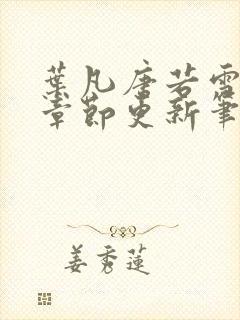 葉凡唐若雪
章節更新筆
姜秀蓮